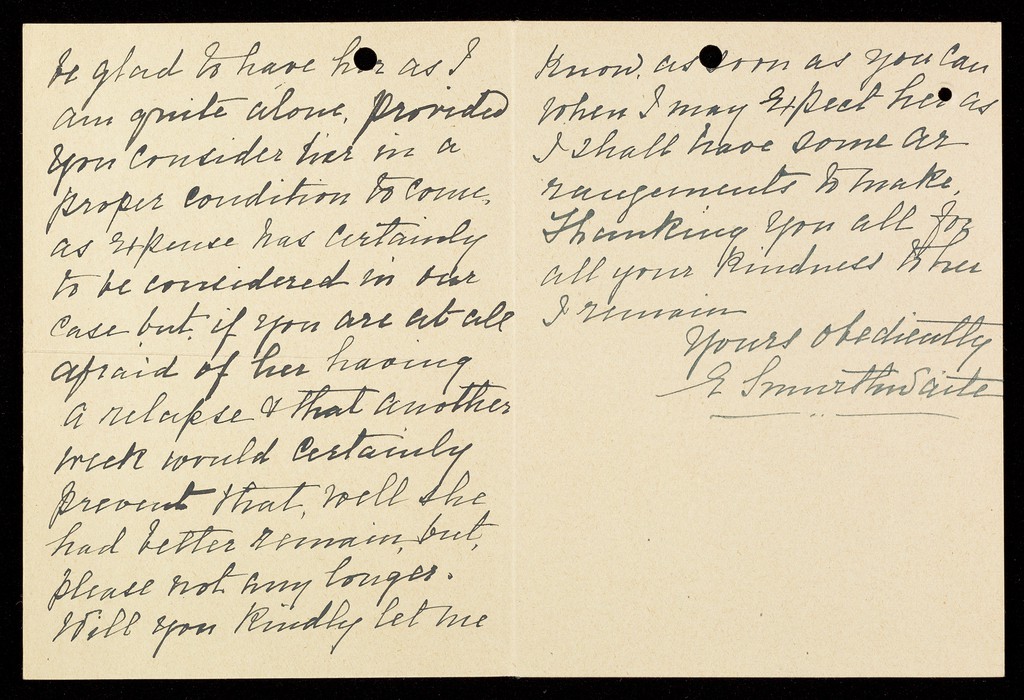 be glad to have her as I
am quite alone, provided
you consider her in a
proper condition to come,
as expense has certainly
to be considered in our
case but, if you are at all
afraid of her having
a relapse & that another
week would certainly
prevent that, well she
had better remain, but,
please not any longer.
Will you kindly let me
know, as soon as you can
when I may expect her as
I shall have some ar
rangements to make,
Thanking you all for
all your kindness to her
I remain
Yours obediently
E Smurthwaite